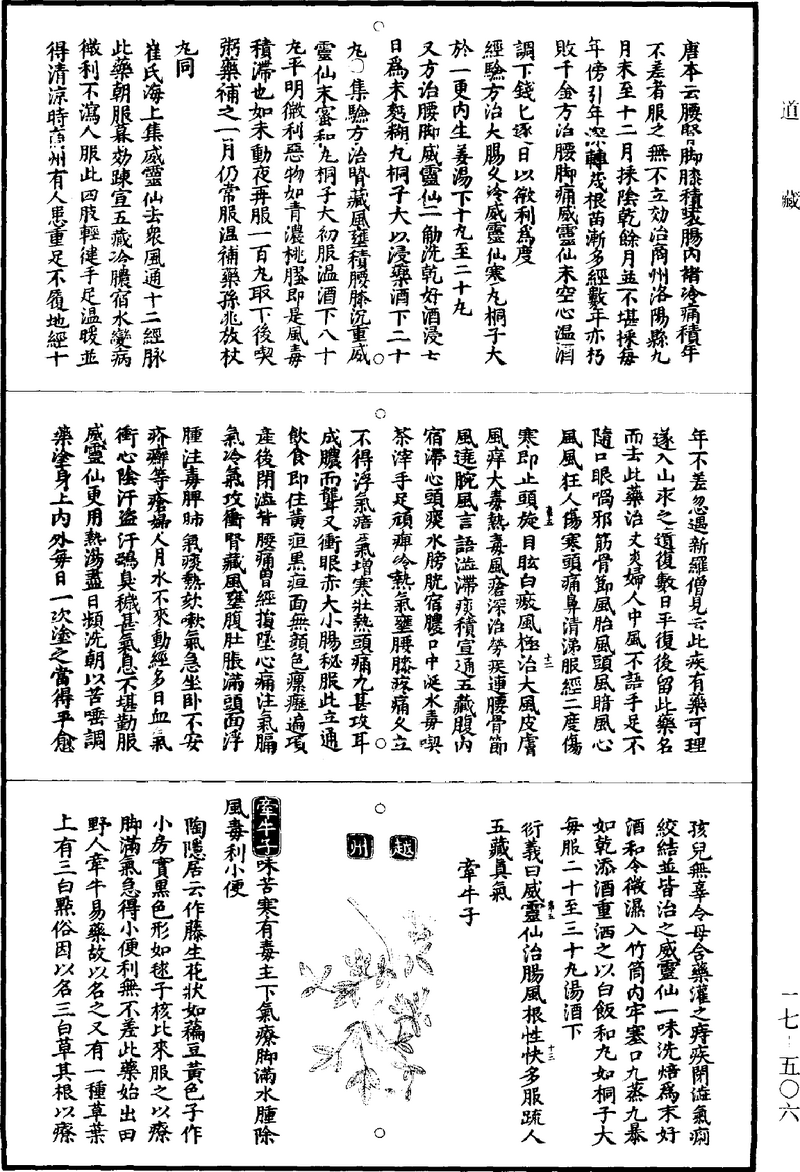 道藏
唐本云腰腎脚膝積聚腸內諸冷痛積年
不差者服之無不立効治商州洛陽縣九
月末至十二月採陰乾餘月並不堪採每
年傍引年深轉茂根苗漸多經數年亦朽
敗千金方治腰脚痛威靈仙末空心溫酒
調下錢匕逐日以微利為度
經驗方治大腸久冷威靈仙蜜丸桐子大
於一更內生姜湯下十丸至二十丸
又方治腰脚威靈仙一觔洗乾好酒浸七
日為末麪糊丸桐子大以浸藥酒下二十
丸○集驗方治腎藏風壅積腰膝沉重威
靈仙末蜜和丸桐子大初服溫酒下八十
丸平明微利惡物如青濃桃膠即是風毒
積滯也如未動夜再服一百丸取下後喫
粥藥補之一月仍常服溫補藥孫兆放杖
丸同
崔氏海上集威靈仙去衆風通十二經脉
此藥朝服暮効踈宣五藏冷膿宿水變病
微利不瀉人服此四肢輕健手足溫暖並
得清涼時商州有人患重足不履地經十
年不差忽遇新羅僧見云此疾有藥可理
遂入山求之遣復數日平復後留此藥名
而去此藥治丈夫婦人中風不語手足不
隨口眼喎邪筋骨節風胎風頭風暗風心
風風狂人傷寒頭痛鼻清涕服經二度傷
寒即止頭旋目眩白癜風極治大風皮膚
風痒大毒熱毒風瘡深治勞疾連腰骨節
風遶腕風言語澁滯痰積宣通五藏腹內
宿滯心頭痰水膀胱宿膿口中涎水毒喫
茶滓手足頑痺冷熱氣壅腰膝疼痛久立
不得浮氣瘴氣增寒壯熱頭痛九甚攻耳
成膿而聾又衝眼赤大小腸秘服此立通
飲食即住黃疸黑疸面無顏色瘰癧遍項
產後閉澁背腰痛曾經損墜心痛注氣膈
氣冷氣攻衝腎藏風壅腹肚脹滿頭面浮
腫注毒脾肺氣痰熱欬嗽氣急坐卧不安
疥癬等瘡婦人月水不來動經多日血氣
衝心陰汗盜汗鵶臭穢甚氣息不堪勤服
威靈仙更用熱湯盡日頻洗朝以苦唾調
藥塗身上內外每日一次塗之當得平愈
孩兒無辜令母含藥灌之痔疾閉澁氣痢
絞結並皆治之威靈仙一味洗焙為末好
酒和令微濕入竹筒內牢塞口九蒸九暴
如乾添酒重洒之以白飯和丸如桐子大
每服二十至三十丸湯酒下
衍義曰威靈仙治腸風根性快多服疏人
五藏真氣
牽牛子
越州
牽牛子味苦寒有毒主下氣療脚滿水腫除
風毒利小便
陶隱居云作藤生花狀如藊豆黃色子作
小房實黑色形如毬子核比來服之以療
脚滿氣急得小便利無不差此藥始出田
野人牽牛易藥故以名之又有一種草葉
上有三白點俗因以名三白草其根以療
一七—五〇六